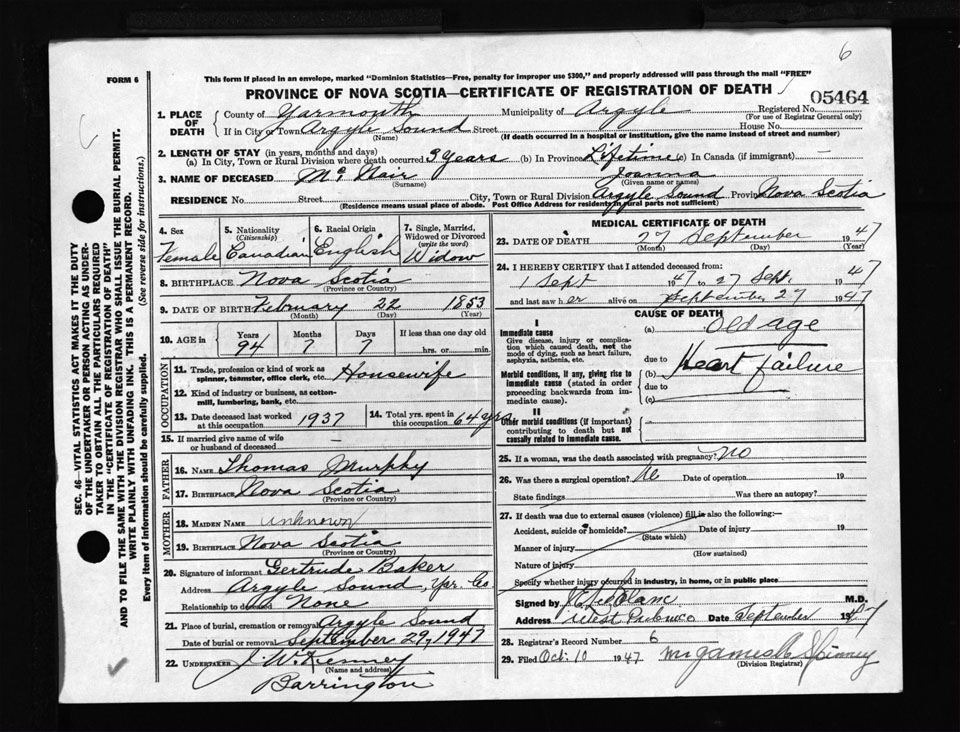 6
FORM 6
This form if placed in an envelope, marked "Dominion Statistics—Free, penalty for improper use $300," and properly addressed will pass through the mail "FREE"
PROVINCE OF NOVA SCOTIA—CERTIFICATE OF REGISTRATION OF DEATH
05464
1. PLACE OF DEATH
County of Yarmouth Municipality of Argyle Registered No.
(For use of Registrar General only)
If in City or Town Argyle Sound Street House No.
(Name) (If death occurred in a hospital or institution, give the name instead of street and number)
2. LENGTH OF STAY (in years, months and days)
(a) In City, Town or Rural Division where death occurred 3 years (b) In Province Lifetime (c) In Canada (if immigrant) —
3. NAME OF DECEASED Mc Nair Joanna
(Surname) (Given name or names)
RESIDENCE No. Street City, Town or Rural Division Argyle Sound Province Nova Scotia
(Residence means usual place of abode. Post Office Address for residents in rural parts not sufficient)
4. Sex Female
5. Nationality (Citizenship) Canadian
6. Racial Origin English
7. Single, Married, Widowed or Divorced (write the word) Widow
8. BIRTHPLACE Nova Scotia
(Province or Country)
9. DATE OF BIRTH February 22 1853
(Month) (Day) (Year)
10. AGE in Years Months Days If less than one day old
94 7 7 hrs. or min.
OCCUPATION
11. Trade, profession or kind of work as spinner, teamster, office clerk, etc. Housewife
12. Kind of industry or business, as cotton-mill, lumbering, bank, etc.
13. Date deceased last worked at this occupation 1937
14. Total yrs. spent in this occupation 64 yrs
15. If married give name of wife or husband of deceased —
FATHER
16. NAME Thomas Murphy
17. BIRTHPLACE Nova Scotia
(Province or Country)
MOTHER
18. MAIDEN NAME unknown
19. BIRTHPLACE Nova Scotia
(Province or Country)
20. Signature of informant Gertrude Baker
Address Argyle Sound, Yar. Co.
Relationship to deceased None
21. Place of burial, cremation or removal Argyle Sound
Date of burial or removal September 29, 1947
22. UNDERTAKER J. W. Kenney
(Name and address)
Barrington
MEDICAL CERTIFICATE OF DEATH
23. DATE OF DEATH 27 September 1947
(Month) (Day) (Year)
24. I HEREBY CERTIFY that I attended deceased from:
1 Sept 1947 to 27 Sept. 1947
and last saw her alive on September 27 1947
CAUSE OF DEATH
I
Immediate cause
Give disease, injury or complication which caused death, not the mode of dying, such as heart failure, asphyxia, asthenia, etc.
(a) Old age
due to
Morbid conditions, if any, giving rise to immediate cause (stated in order proceeding backwards from immediate cause).
(b) Heart failure
due to
(c)
II
Other morbid conditions (if important) contributing to death but not causally related to immediate cause.
25. If a woman, was the death associated with pregnancy? No
26. Was there a surgical operation? No Date of operation 19
State findings Was there an autopsy?
27. If death was due to external causes (violence) fill in also the following:—
Accident, suicide or homicide? Date of injury 19
(State which)
Manner of injury
(How sustained)
Nature of injury
Specify whether injury occurred in industry, in home, or in public place
Signed by LeBlanc M.D.
Address West Pubnico Date September 1947
28. Registrar's Record Number 6
29. Filed Oct. 10 1947 Mr James Spinney
(Division Registrar)
SEC. 46—VITAL STATISTICS ACT MAKES IT THE DUTY
OF THE UNDERTAKER OR PERSON ACTING AS UNDER-
TAKER TO OBTAIN ALL THE PARTICULARS REQUIRED
IN THE "CERTIFICATE OF REGISTRATION OF DEATH"
AND TO FILE THE SAME WITH THE DIVISION REGISTRAR WHO SHALL ISSUE THE BURIAL PERMIT.
WRITE PLAINLY WITH UNFADING INK. THIS IS A PERMANENT RECORD.
Every item of Information should be carefully supplied. (See reverse side for instructions.)